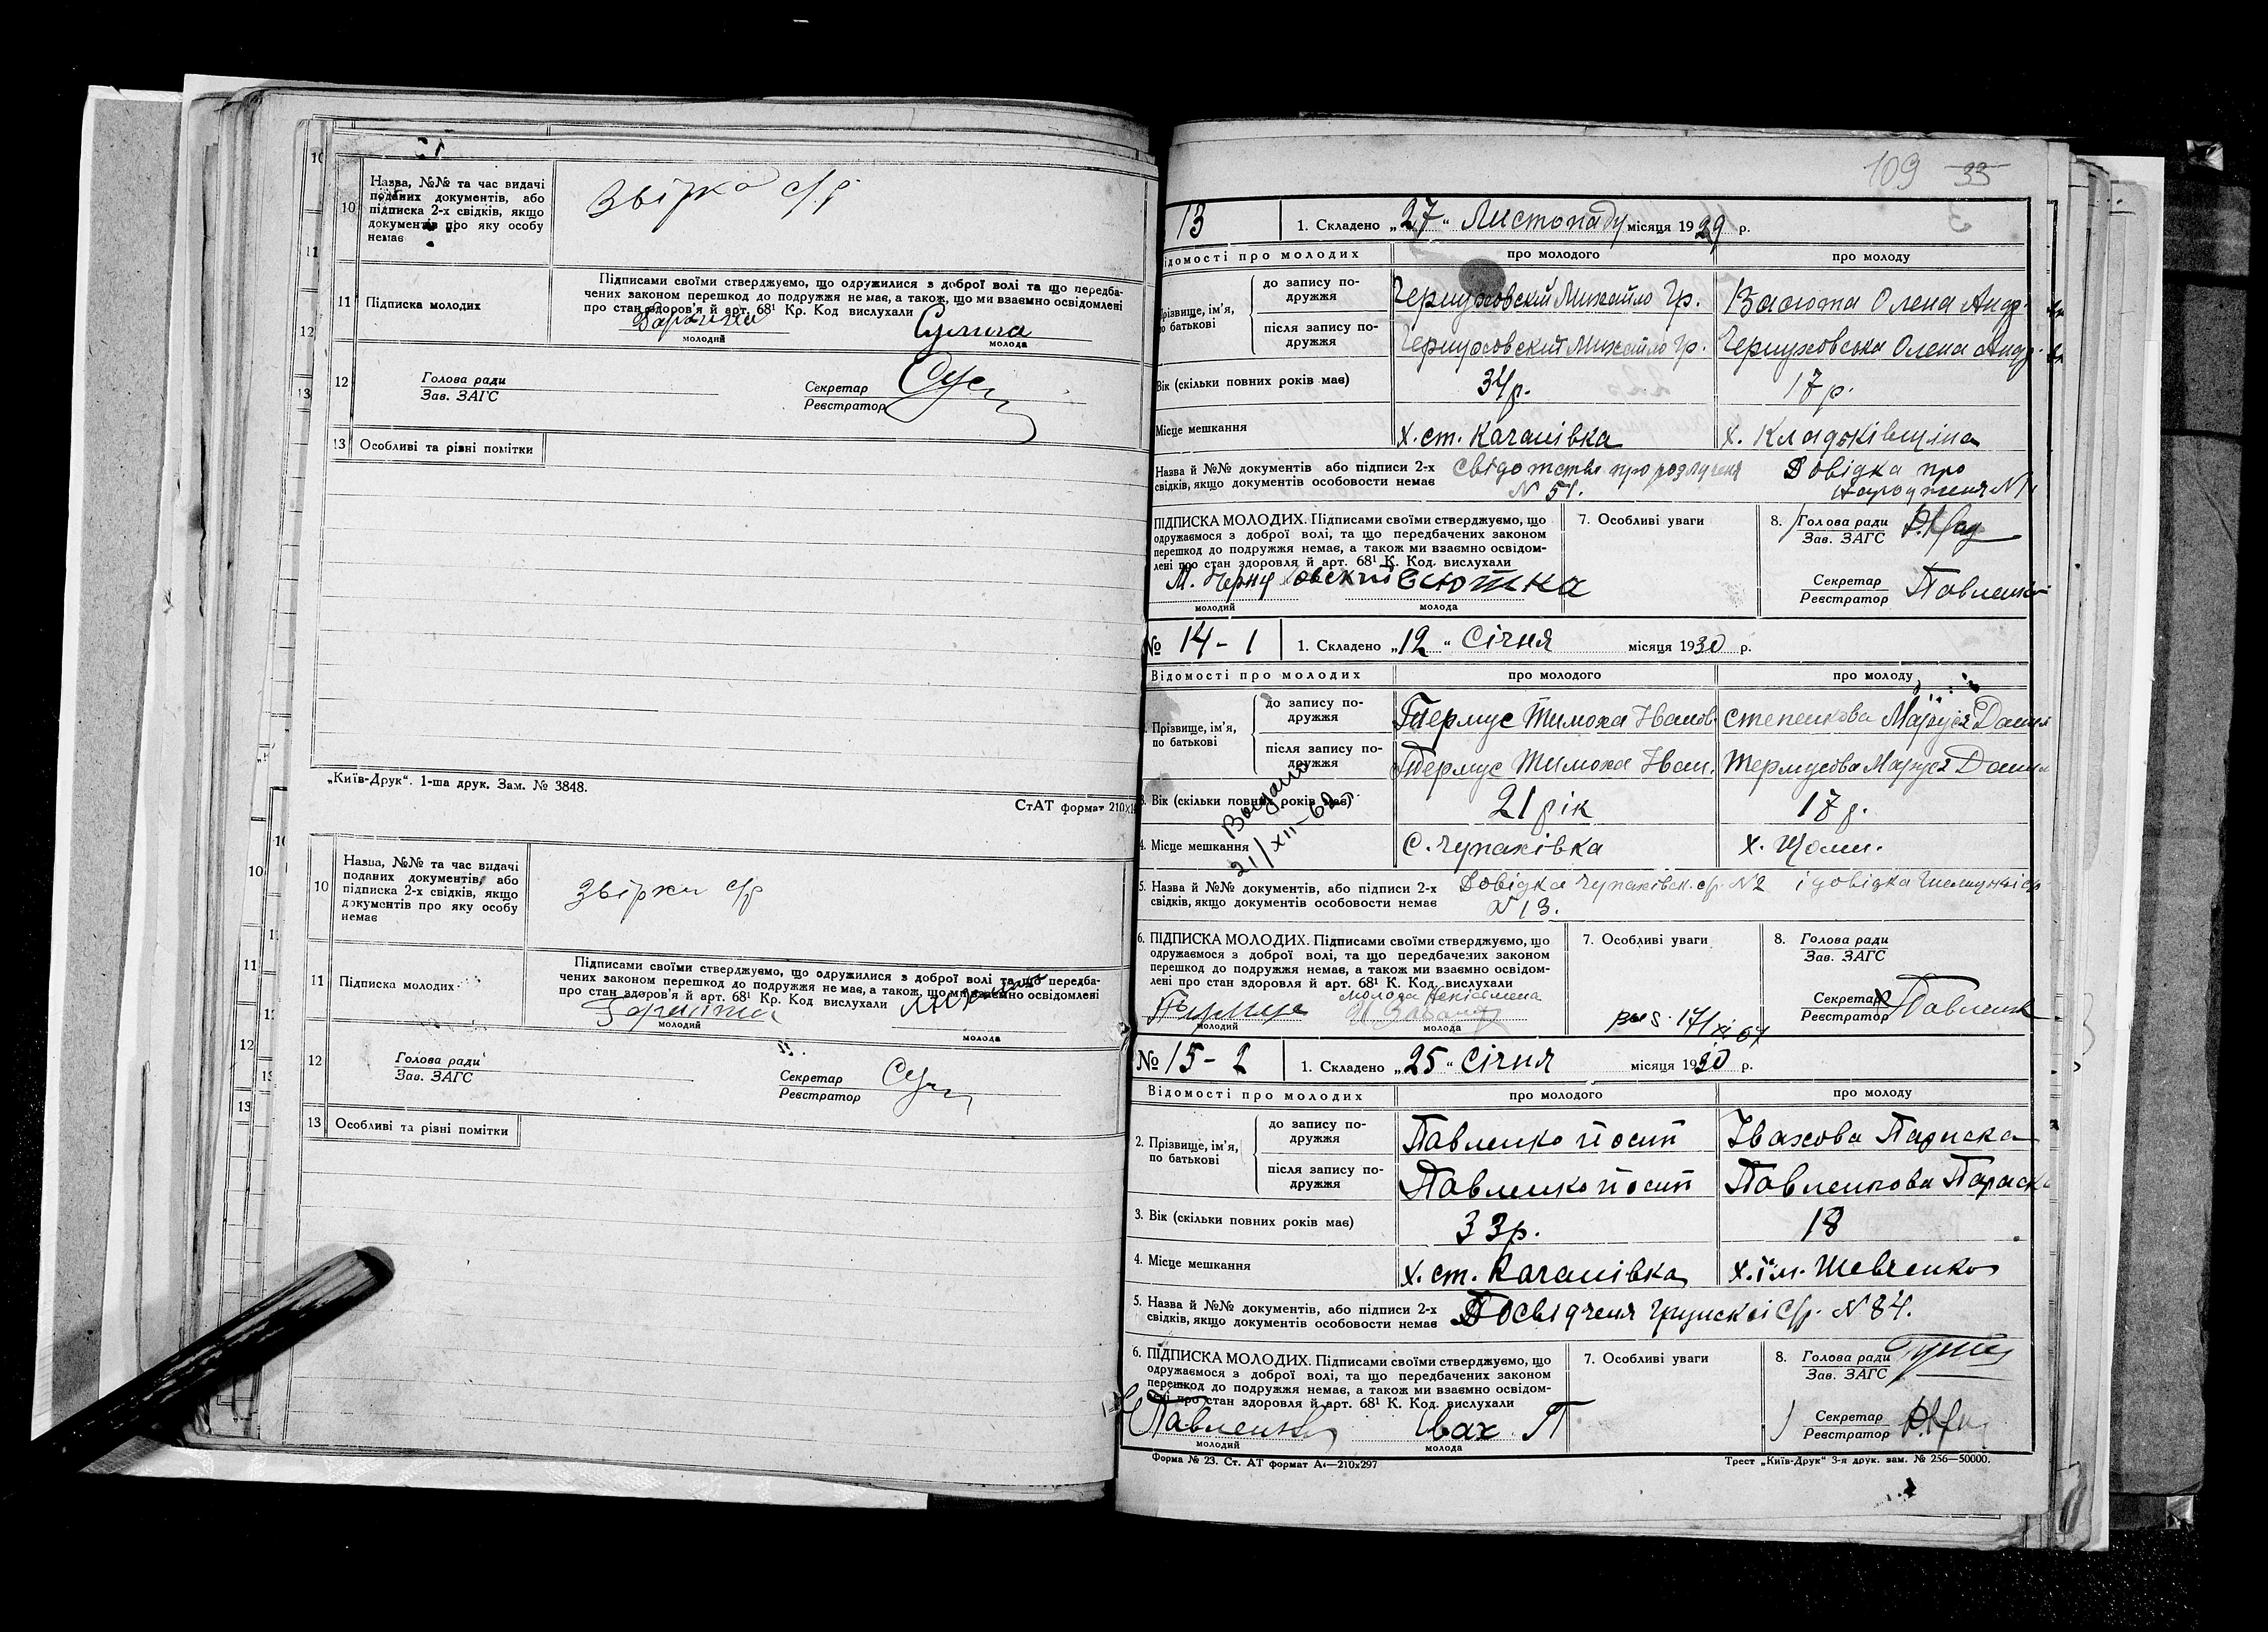 10 Назва, №№ та час видачі
поданих документів, або
підписка 2-х свідків, якщо
документів про яку особу
немає
Звірка с/р
11 Підписка молодих
Підписами своїми стверджуємо, що одружилися з доброї волі та що передба-
чених законом перешкод до подружжя не має, а також, що ми взаємно освідомлені
про стан здоров'я й арт. 68¹ Кр. Код вислухали
молодий
молода
12 Голова ради
Зав. ЗАГС
Секретар
Реєстратор
13 Особливі та різні помітки
„Київ-Друк“. 1-ша друк. Зам. № 3848.
СтАТ формат 210х
10 Назва, №№ та час видачі
поданих документів, або
підписка 2-х свідків, якщо
документів про яку особу
немає
Звірка с/р
11 Підписка молодих
Підписами своїми стверджуємо, що одружилися з доброї волі та що передба-
чених законом перешкод до подружжя не має, а також, що ми взаємно освідомлені
про стан здоров'я й арт. 68¹ Кр. Код вислухали
молодий
молода
12 Голова ради
Зав. ЗАГС
Секретар
Реєстратор
13 Особливі та різні помітки
109 33
13 1. Складено „27“ Листопаду місяця 1929 р.
ідомості про молодих про молодого про молоду
різвище, ім'я,
о батькові
до запису по-
дружжя
Михайло Гр. Васюта Олена Андр.
після запису по-
дружжя
Михайло Гр. Олена Андр.
Вік (скільки повних років має) 34р. 17р.
Місце мешкання х. ст. Качанівка х. Кладьківщина
Назва й №№ документів або підписи 2-х
свідків, якщо документів особовости немає
Свідотство про розлученя
N 51.
Довідка про
народженя N 1
ПІДПИСКА МОЛОДИХ. Підписами своїми стверджуємо, що
одружаємося з доброї волі, та що передбачених законом
перешкод до подружжя немає, а також ми взаємно освідом-
лені про стан здоровля й арт. 68¹ К. Код. вислухали
молодий
молода
7. Особливі уваги
8. Голова ради
Зав. ЗАГС
Секретар
Реєстратор Павленко
№ 14-1 1. Складено „12“ Січня місяця 1930 р.
Відомості про молодих про молодого про молоду
Прізвище, ім'я,
по батькові
до запису по-
дружжя
Термус Тимоха Іванов. Степенкова Маруся Данил
після запису по-
дружжя
Термус Тимоха Іван. Термусова Маруся Данил
3. Вік (скільки повних років має) 21 рік 17 р.
4. Місце мешкання С. Чупахівка
21/XII-62
5. Назва й №№ документів, або підписи 2-х
свідків, якщо документів особовости немає
Довідка Чупахівск. с/р. N 2 і довідка
N 13.
6. ПІДПИСКА МОЛОДИХ. Підписами своїми стверджуємо, що
одружаємося з доброї волі, та що передбачених законом
перешкод до подружжя немає, а також ми взаємно освідом-
лені про стан здоровля й арт. 68¹ К. Код. вислухали
молодий
молода
7. Особливі уваги
8. Голова ради
Зав. ЗАГС
Секретар
Реєстратор Павленк
№ 15-2 1. Складено „25“ Січня місяця 1930 р.
Відомості про молодих про молодого про молоду
2. Прізвище, ім'я,
по батькові
до запису по-
дружжя
Павленко Йосип Івахова Параска
після запису по-
дружжя
Павленко Йосип Павленкова Параска
3. Вік (скільки повних років має) 33р. 18
4. Місце мешкання х. ст. Качанівка х. ім. Шевченко
5. Назва й №№ документів, або підписи 2-х
свідків, якщо документів особовости немає
Посвідченя Грунскої С/р. N 84.
6. ПІДПИСКА МОЛОДИХ. Підписами своїми стверджуємо, що
одружаємося з доброї волі, та що передбачених законом
перешкод до подружжя немає, а також ми взаємно освідом-
лені про стан здоровля й арт. 68¹ К. Код. вислухали
Павленко Івах П
молодий
молода
7. Особливі уваги
8. Голова ради
Зав. ЗАГС
Секретар
Реєстратор
Форма № 23. Ст. АТ формат А4—210х297
Трест „Київ-Друк“ 3-я друк. зам. № 256—50000.